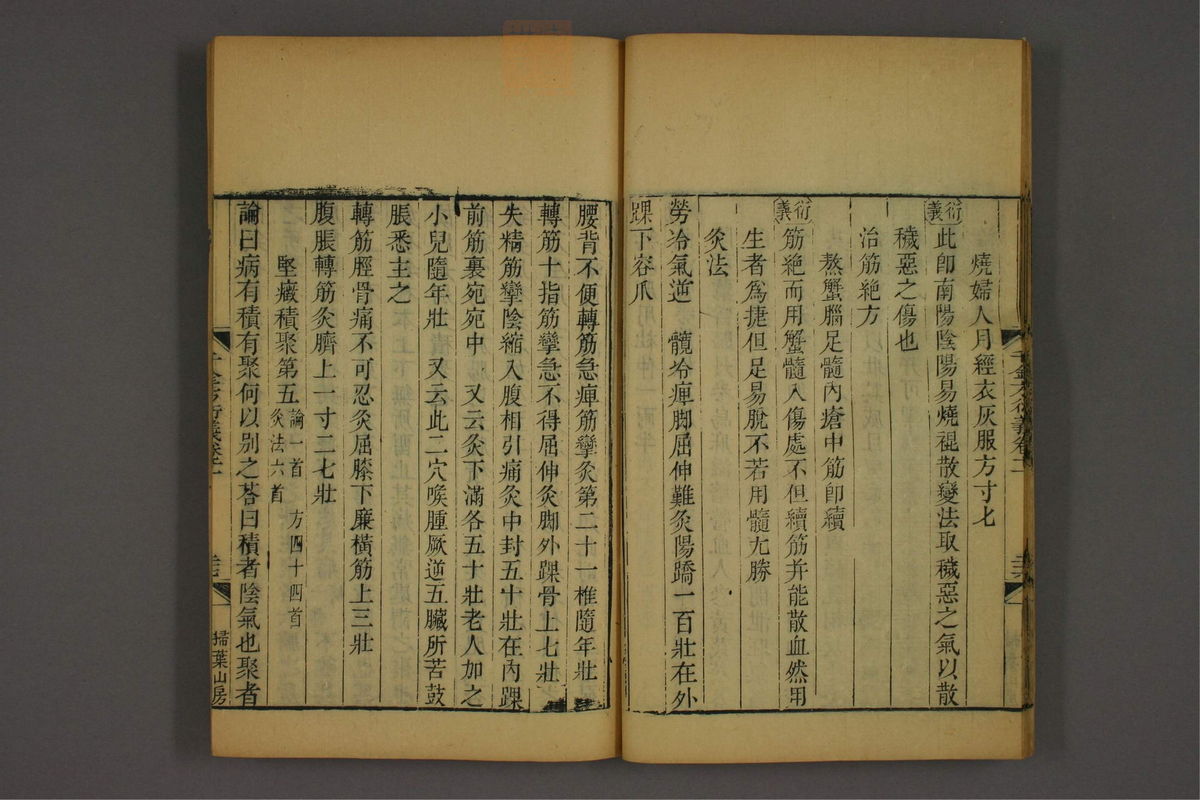 燒婦人月經衣灰服方寸匕
衍義
此卽南陽陰陽易燒裩散變法取穢惡之氣以散
穢惡之傷也
治筋絶方
熬蟹腦足髓內瘡中筋卽續
衍義
筋絶而用蟹髓入傷處不但續筋并能散血然用
生者爲捷但足易脫不若用髓尤勝
灸法
勞冷氣逆　髖冷痺脚屈伸難灸陽蹻一百壯在外
踝下容爪
腰背不便轉筋急痺筋攣灸第二十一椎隨年壯
轉筋十指筋攣急不得屈伸灸脚外踝骨上七壯
失精筋攣陰縮入腹相引痛灸中封五十壯在內踝
前筋裏宛宛中　又云灸下滿各五十壯老人加之
小兒隨年壯　又云此二穴喉腫厥逆五臟所苦鼓
脹悉主之
轉筋脛骨痛不可忍灸屈膝下廉橫筋上三壯
腹脹轉筋灸臍上一寸二七壯
堅癥積聚第五
論一首　方四十四首
灸法六首
論曰病有積有聚何以别之荅曰積者陰氣也聚者
掃葉山房